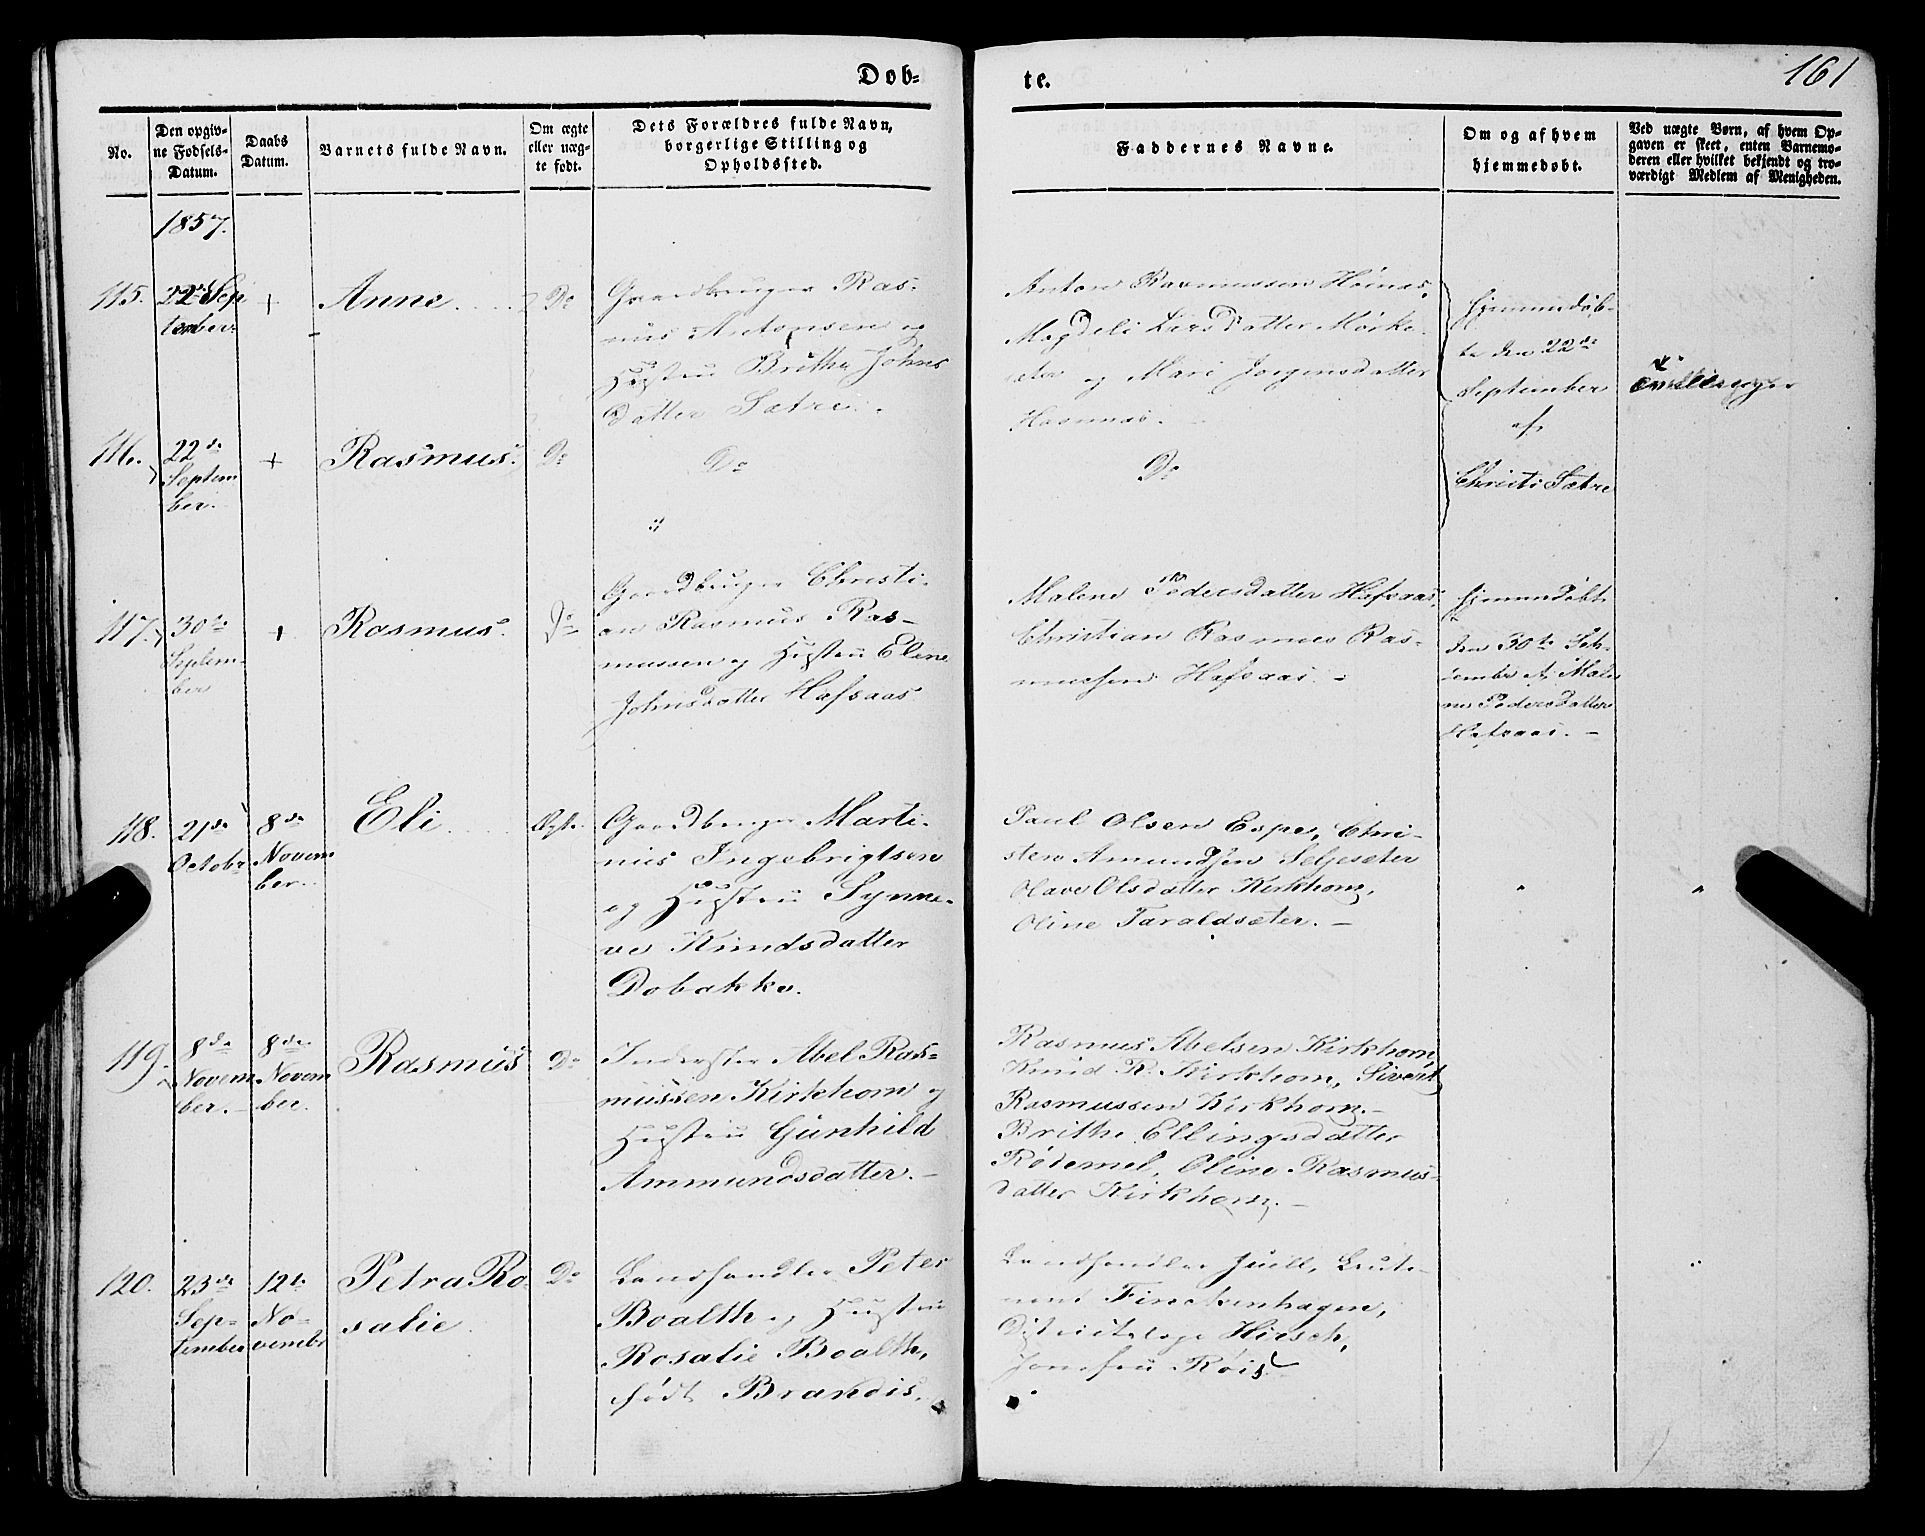 Døb-
te.
161
No.
Den opgiv-
ne Fødsels-
Datum.
Daabs
Datum.
Barnets fulde Navn.
Om ægte
eller uæg-
te født.
Dets Forældres fulde Navn,
borgerlige Stilling og
Opholdssted.
Faddernes Navne.
Om og af hvem
hjemmedøbt.
Ved uægte Børn, af hvem Op-
gaven er skeet, enten Barnemo-
deren eller hvilket bekjendt og tro-
værdigt Medlem af Menigheden.
1857.
115.
22de Sep
tember
+
Anne
Do
Gaardbruger Ras-
mus Antonsen og
Hustru Brithe Johns
datter Sætre.
Anton Rasmussen Høinæs,
Magdeli Larsdatter Mørke-
sæter og Mari Jørgensdatter
Hjemmedøb-
te den 22de
September
af
Christi Sætre
Tvillinger
116.
22de
Septem
ber.
+
Rasmus.
Do
Do
"
Do
117.
30te
Septem-
ber
+
Rasmus.
Do
Gaardbruger Christi-
an Rasmus Ras-
mussen og Hustru Eline
Johnsdatter Hafsaas
Malene Pedersdatter Hafsaas,
Christian Rasmus Ras-
mussen Hafsaas. -
Hjemmedøbt
den 30te Sep-
tember af Male
ne Pedersdatter
Hafsaas. -
118.
21de
Octobr
8de
Novem
ber.
Eli
Ægte
Gaardbruger Marti-
nus Ingebrigtsen
og Hustru Synne-
ve Knudsdatter
Dobakke.
Paul Olsen Espe, Chri-
sten Amundsen Seljesæter
Olave Olsdatter Kirkhorn,
Oline Taraldsæter. -
"
"
119.
8de
Novem
ber. -
8de
Novem
ber.
Rasmus
Do
Inderster Abel Ras-
mussen Kirkhorn og
Hustru Gunhild
Ammundsdatter. -
Rasmus Abelsen Kirkhorn,
Knud R. Kirkhorn, Sivert
Rasmussen Kirkhorn. -
Brithe Ellingsdatter
Rødemel, Oline Rasmus-
datter Kirkhorn. -
120.
23de
Sep-
tember
12te
No-
vember
Petra Ro
salie
Do
Landhandler Peter
Boalth og Hustru
Rosalie Boalth,
født Brandis.
Landhandler Juell, Leute-
nant Finckenhagen,
Districtslæge Hirsch,
Jomfru Røis
"